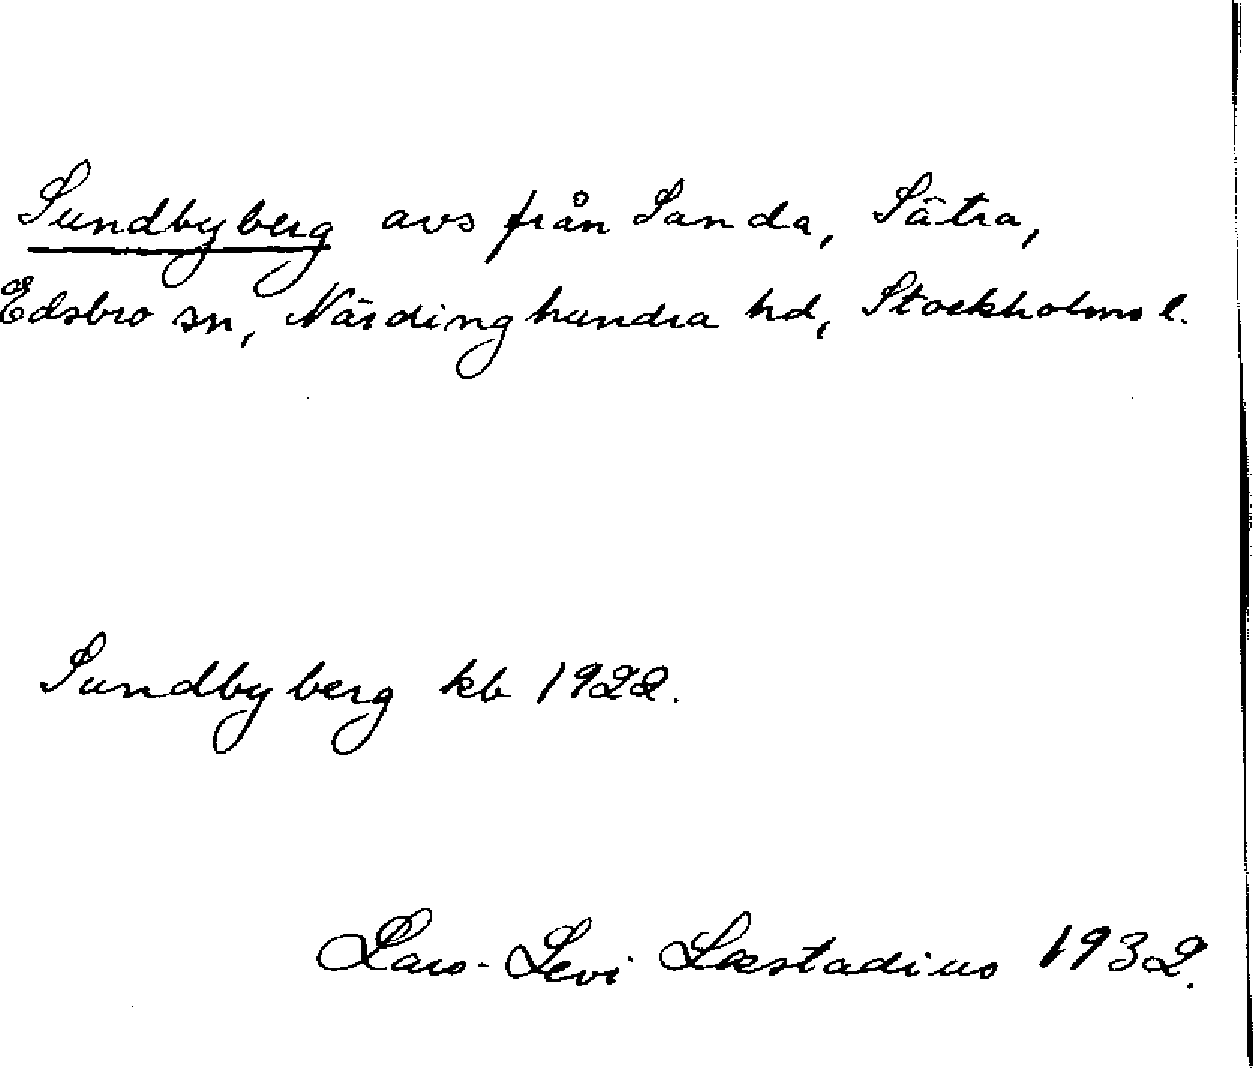 Sundbyberg avs från Sanda, Sätra,
Edsbro sn, Närdinghundra hd, Stockholms l.
Sundbyberg kb 1922.
Lars-Levi Læstadius 1932.